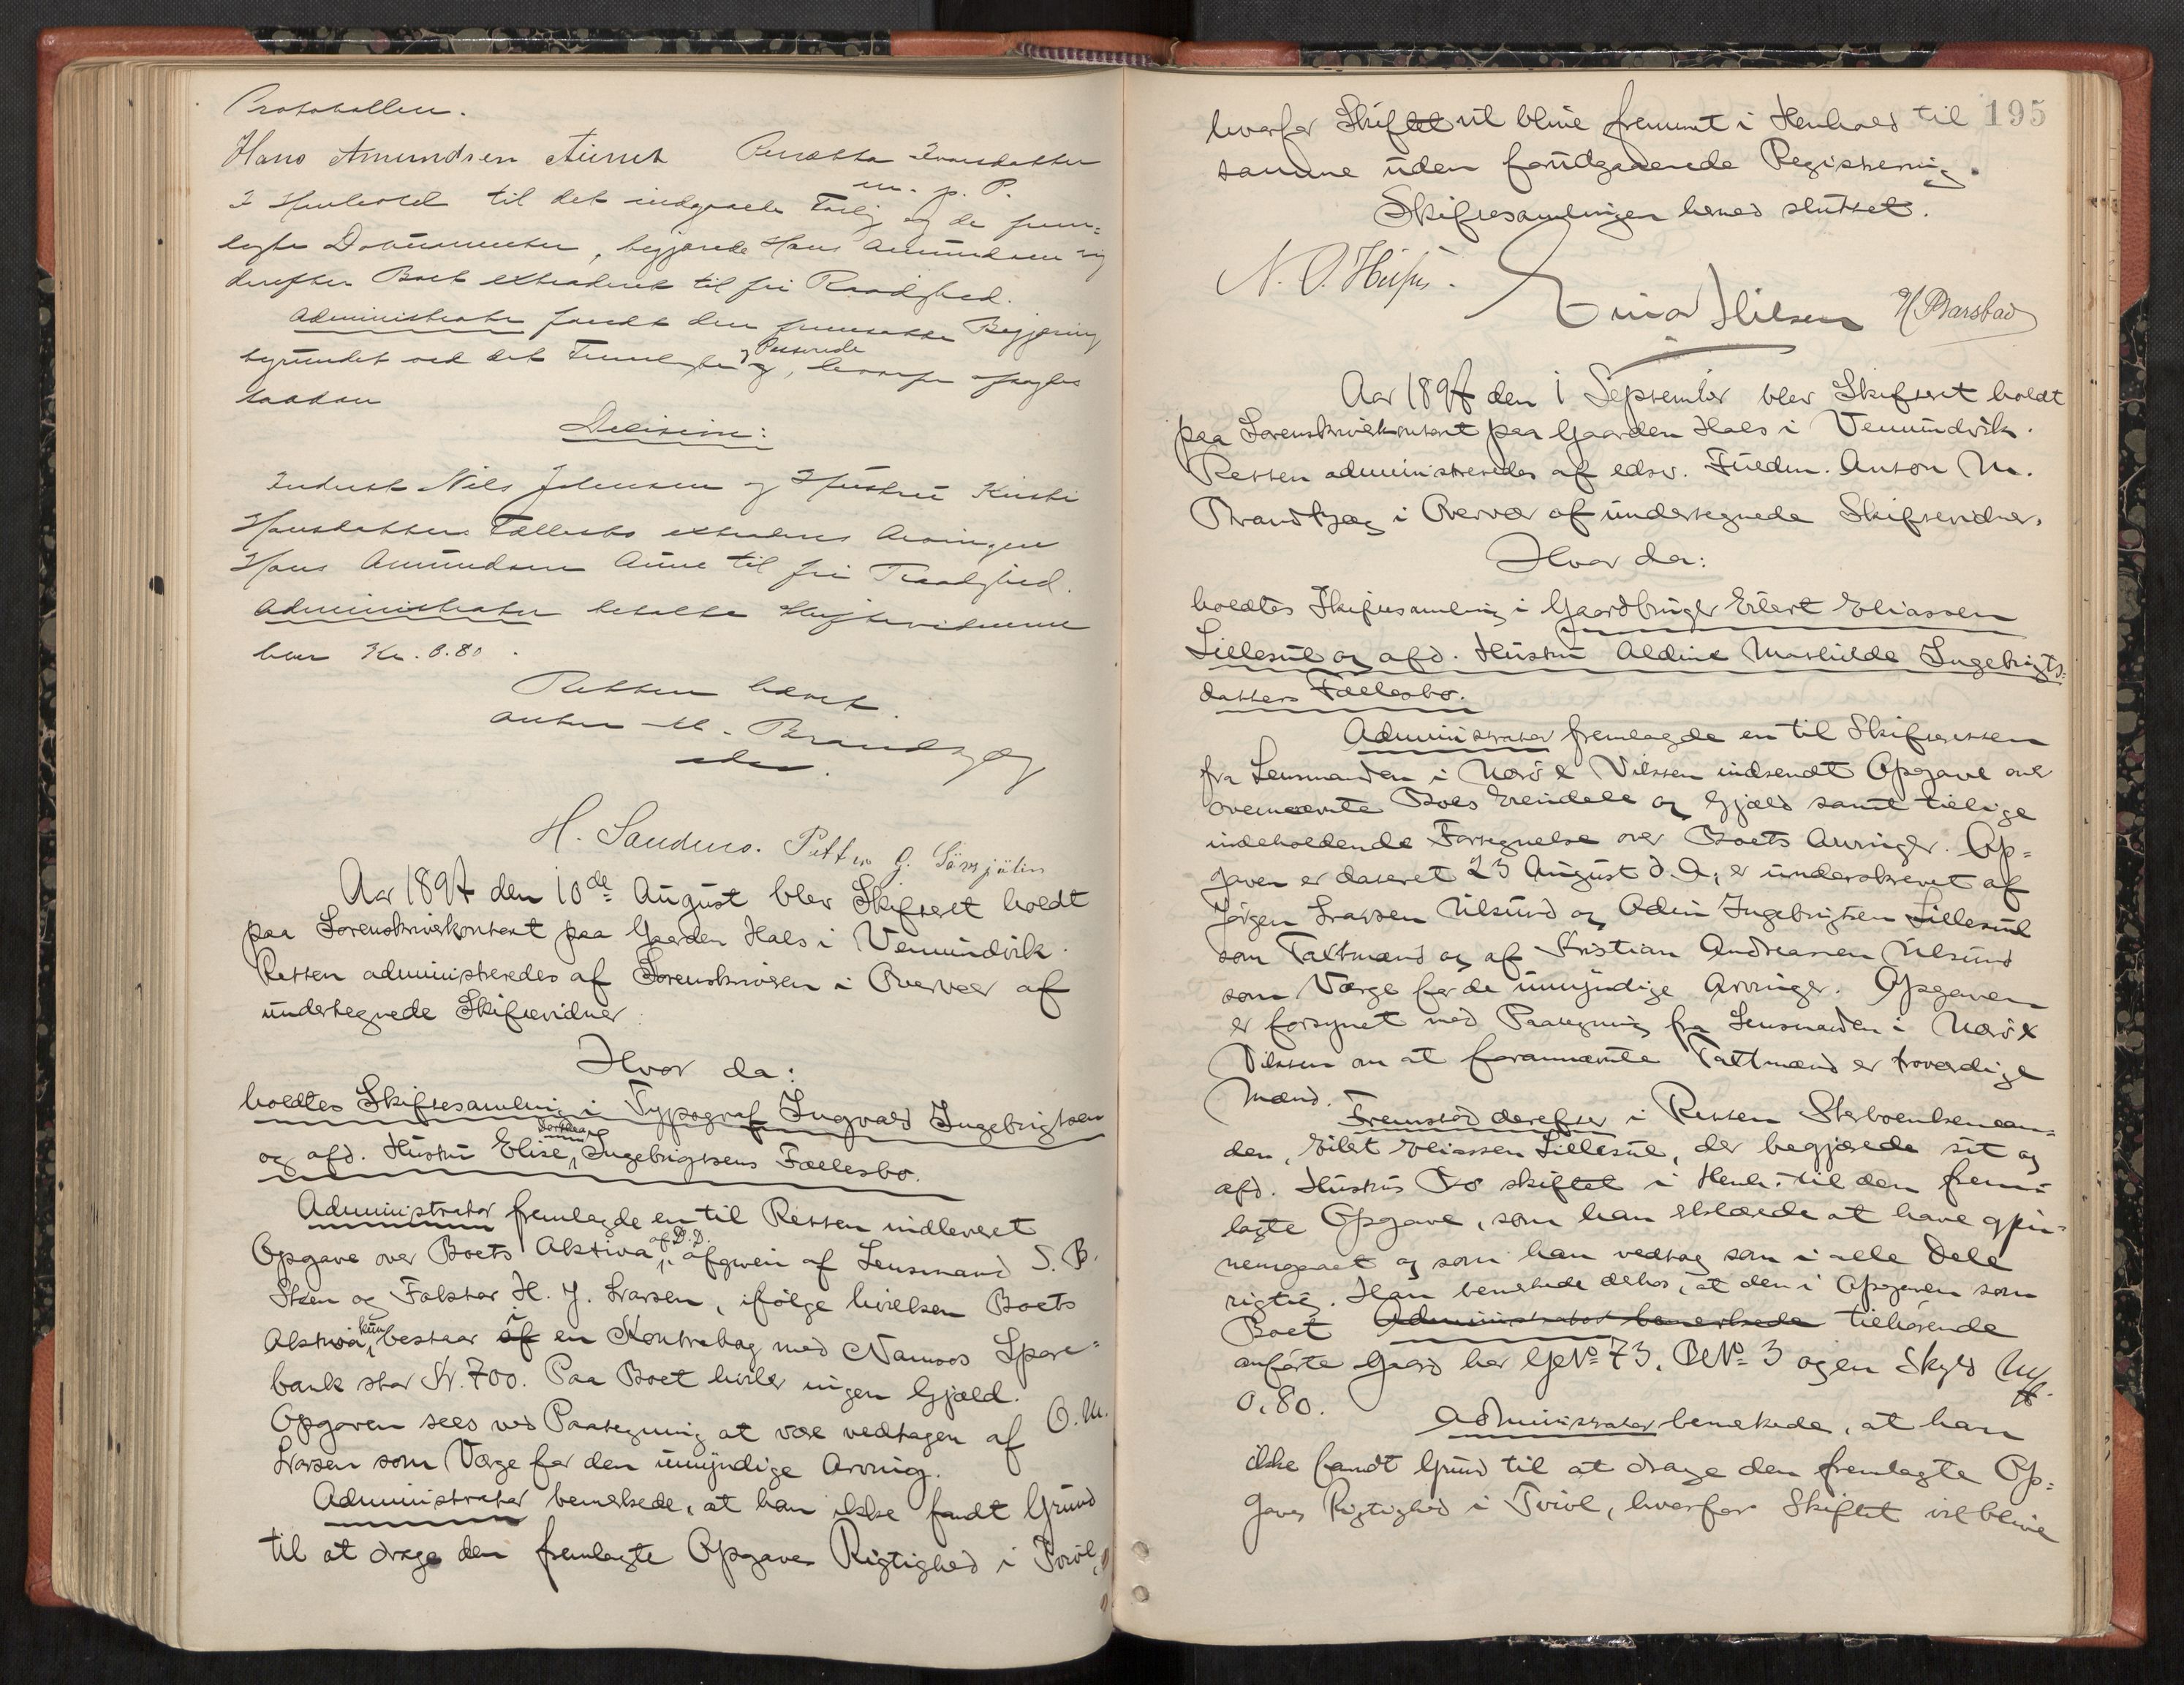 Protokollen.
Hans Amundsen Aunet Renætha Ivarsdatter
m. p. P.
I Henhold til det indgaaede Forlig og de frem-
lagte Documenter, begjærede Hans Amundsen sig
derefter Boet extraderet til fri Raadighed.
Administrator fandt den fremsatte Begjæring
begrundet ved det Fremlagte og Passerede, hvorfor afsagdes
saadan
Decision:
Inderst Nils Johnsen og Hustru Kirsti
Hansdatters Fællesbo extraderes Arvingen
Hans Amundsen Aune til fri Raadighed.
Administrator betalte Skiftevidnerne
hver Kr. 0.80.
Retten hævet.
Anton M. Brandtzæg
edsv.
H. Sandnes. Petter G.
Aar 1897 den 10de August blev Skifteret holdt
paa Sorenskriverkontoret paa Gaarden Hals i Vemundvik.
Retten administreredes af Sorenskriveren i Overvær af
undertegnede Skiftevidner
Hvor da:
holdtes Skiftesamling i Typograf Ingvald Ingebrigtsen
og afd. Hustru Elise Dorthea Ingebrigtsens Fællesbo.
Administrator fremlagde en til Retten indleveret
Opgave over Boets Aktiva af D.D. afgiven af Lensmand S. B.
Steen og Faktor H. J. Larsen, ifølge hvilken Boets
Aktiva kun bestaar af i en Kontrabog med Namsos Spare-
bank stor Kr. 700. Paa Boet hviler ingen Gjæld.
Opgaven sees ved Paategning at være vedtagen af O. M.
Larsen som Værge for den umyndige Arving.
Administrator bemerkede, at han ikke fandt Grund
til at drage den fremlagte Opgaves Rigtighed i Tvivl,
195
hvorfor Skiftet vil blive fremmet i Henhold til
samme uden forudgaaende Registrering.
Skiftesamlingen hermed sluttet.
N. O. Einar Nilsen H. Barstad
Aar 1897 den 1 September blev Skifteret holdt
paa Sorenskriverkontoret paa Gaarden Hals i Vemundvik.
Retten administreredes af edsv. Fuldm. Anton M.
Brandtzæg i Overvær af undertegnede Skiftevidner.
Hvor da:
holdtes Skiftesamling i Gaardbruger Eilert Eliassen
Lillesul og afd. Hustru Aldine Mathilde Ingebrigts-
datters Fællesbo.
Administrator fremlagde en til Skifteretten
fra Lensmanden i Nærø & Vikten indsendt Opgave over
ovennævnte Boes Eiendele og Gjæld samt tillige
indeholdende Fortegnelse over Boets Arvinger. Op-
gaven er dateret 23 August d. A., er underskrevet af
Jørgen Larsen Ulsund og Odin Ingebrigtsen Lillesul
som Taxtmænd og af Kristian Andreassen Ulsund
som Værge for de umyndige Arvinger. Opgaven
er forsynet med Paategning fra Lensmanden i Nærø &
Vikten om at forannævnte Taxtmænd er troværdige
Mænd.
Fremstod derefter i Retten Sterboenkeman-
den, Eilert Eliassen Lillesul, der begjærede sit og
afd. Hustrus Bo skiftet i Henh. til den frem-
lagte Opgave, som han erklærede at have gjen-
nemgaaet og som han vedtog som i alle Dele
rigtig. Han bemerkede derhos, at den i Opgaven som
Boet Administrator bemerkede tilhørende
anførte Gaard har GNo 73, BNo 3 og en Skyld Mk
0,80.
Administrator bemerkede, at han
ikke fandt Grund til at drage den fremlagte Op-
gaves Rigtighed i Tvivl, hvorfor Skiftet vil blive